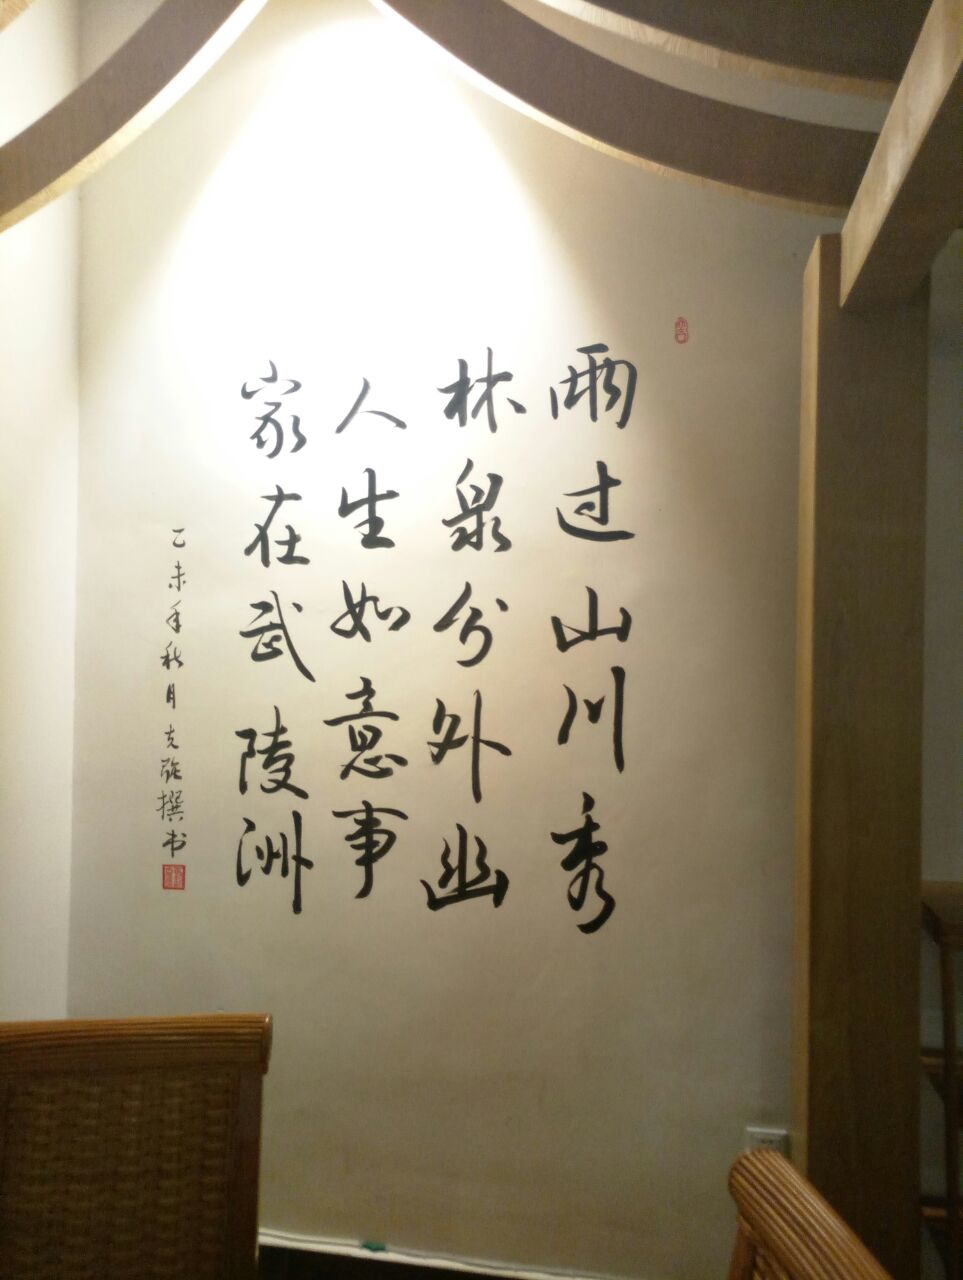 雨过山川秀
林泉分外幽
人生如意事
家在武陵洲
乙未年秋月克强撰书